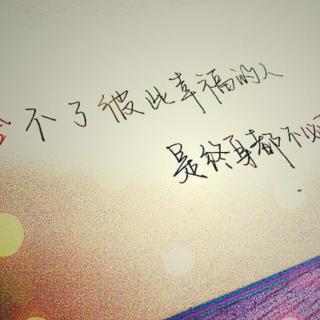 不了彼此幸福的人
是终身都不必